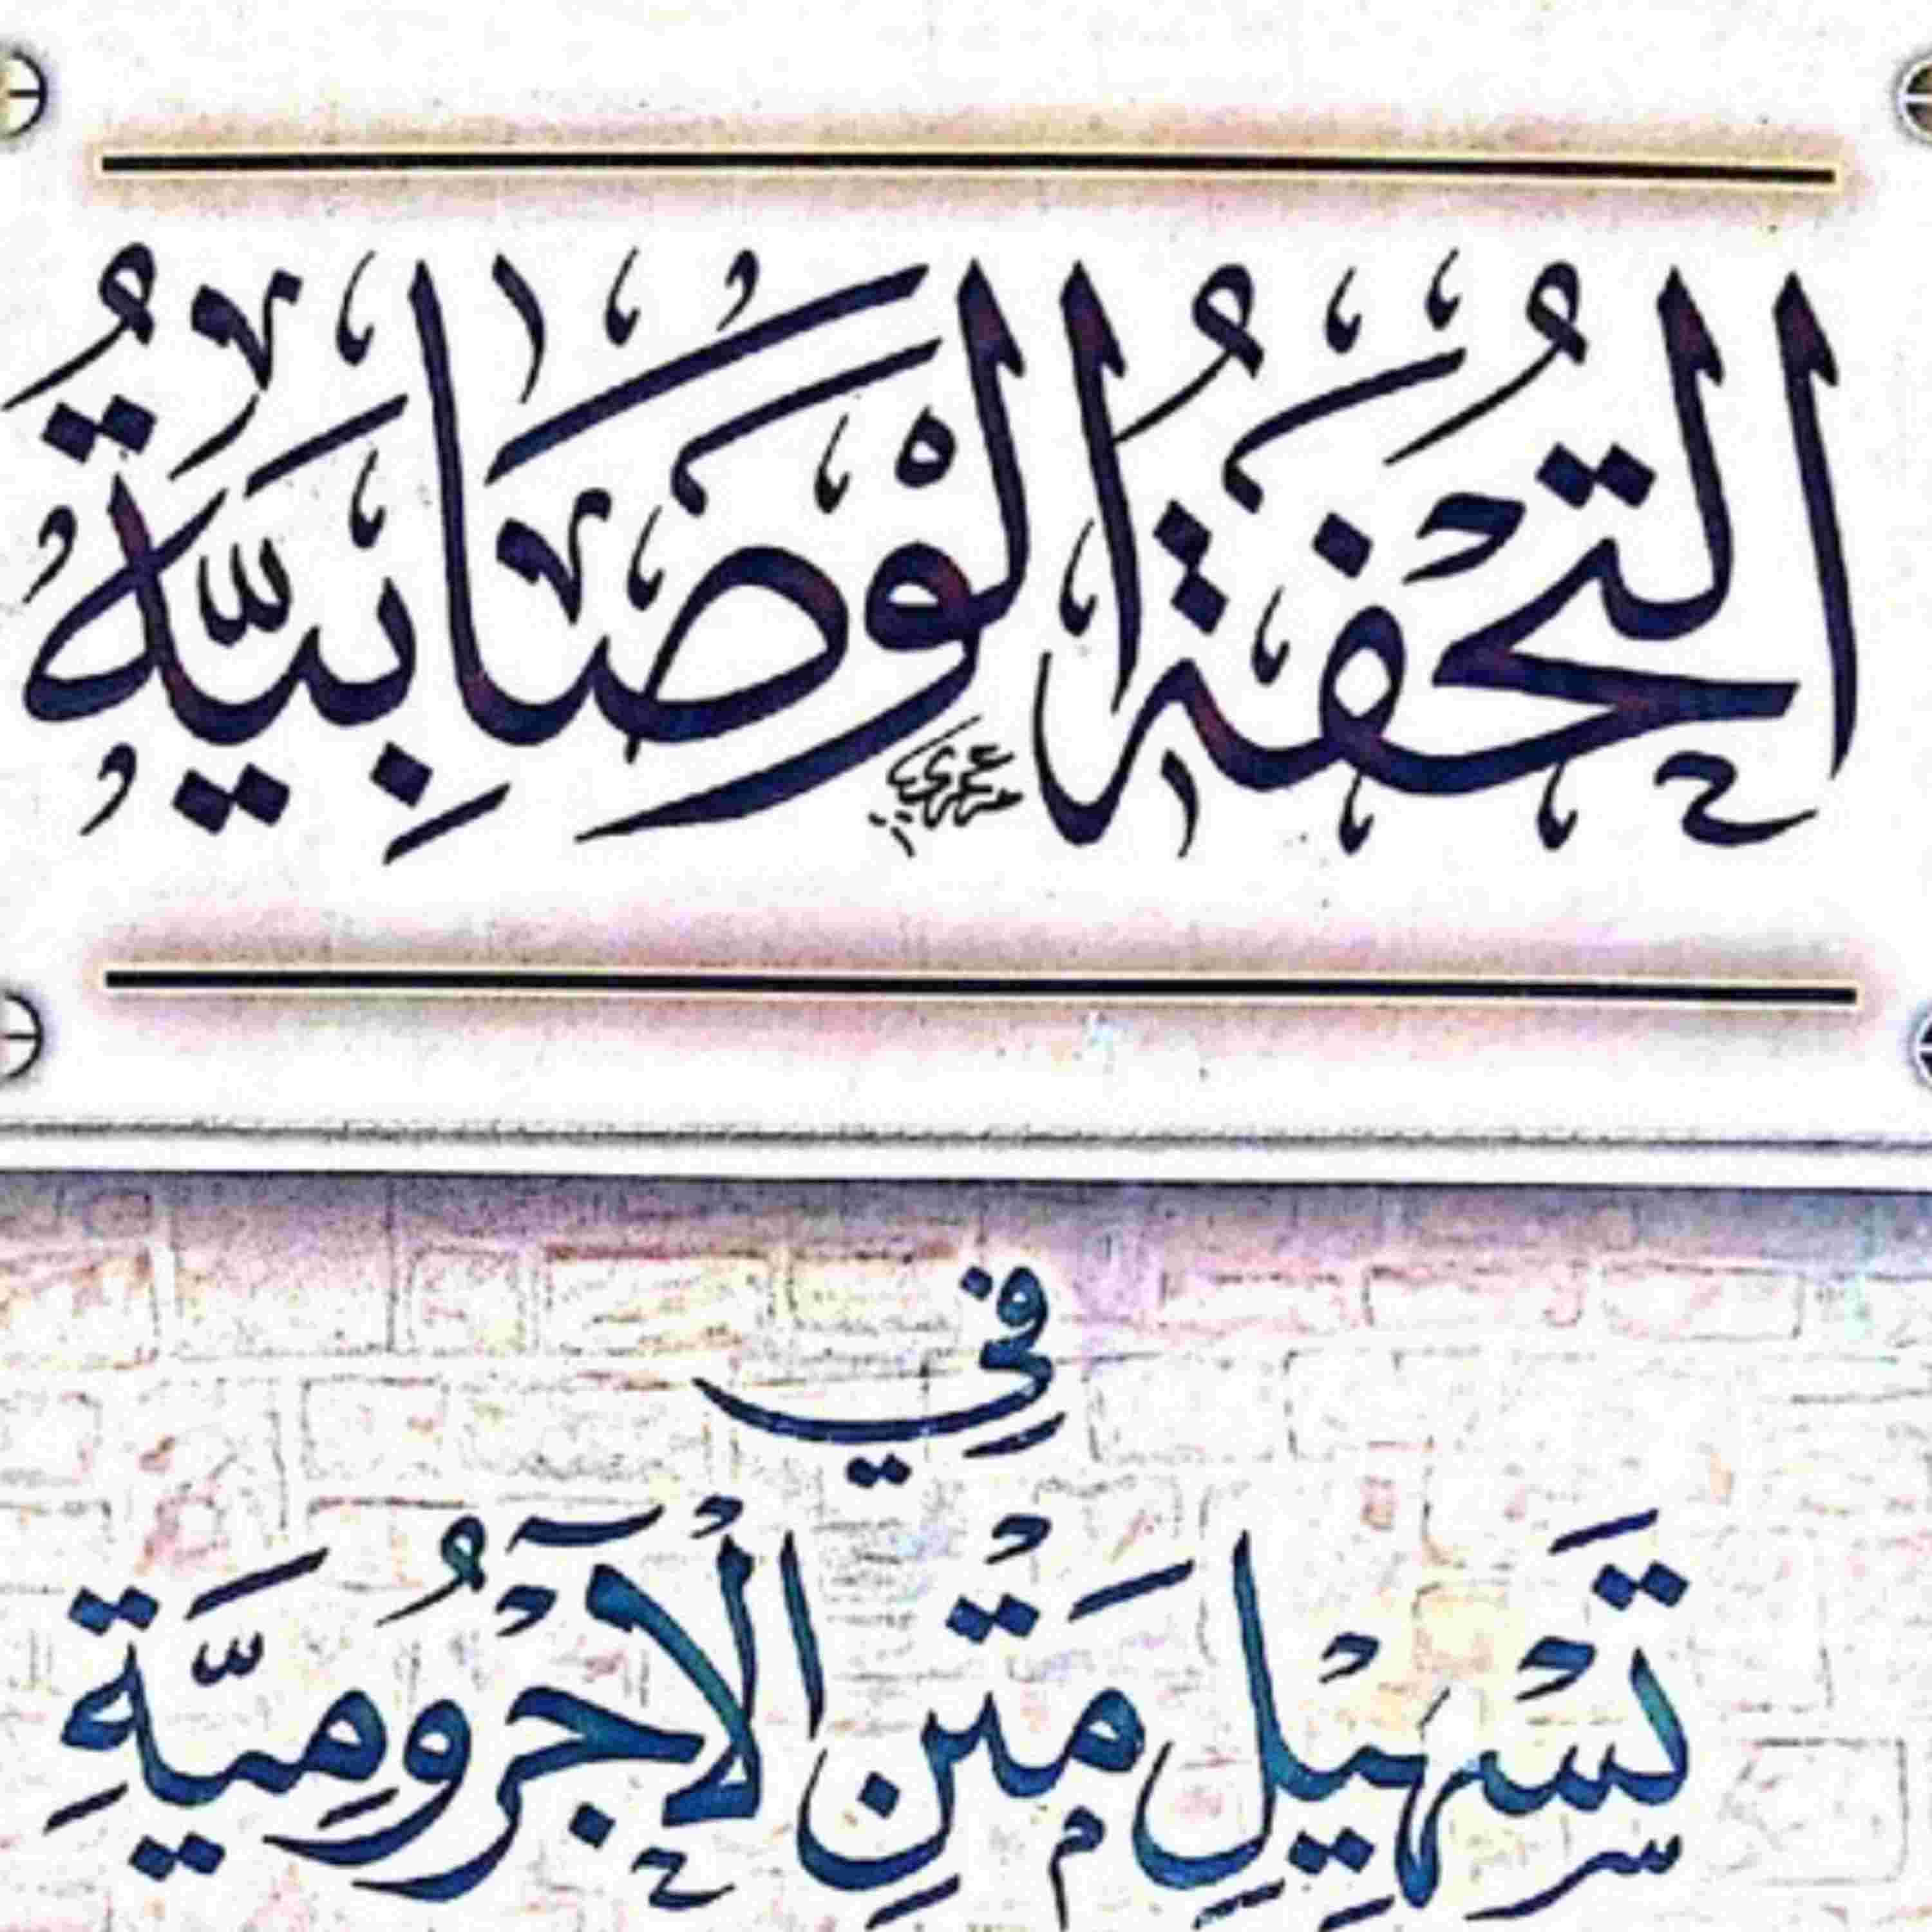 التُّحْفَةُ الْوَصَّابِيَّةُ
فِي
تَسْهِيْلِ مَتْنِ الْآجْرُومِيَّةِ